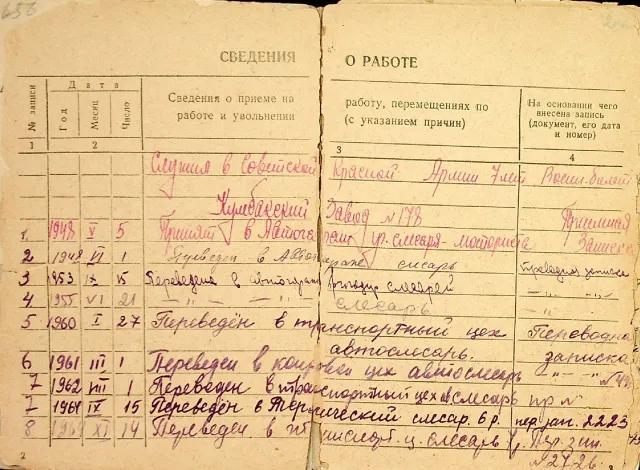 656
СВЕДЕНИЯ О РАБОТЕ
№ записи
Дата
Год
Месяц
Число
Сведения о приеме на работу, перемещениях по
работе и увольнении (с указанием причин)
На основании чего
внесена запись
(документ, его дата
и номер)
1 2 3 4
Служил в Советской Красной Армии 7 лет Воен. билет
Кулебакский Завод № 178
1 1948 V 5 Принят в гр. слесаря-моториста Приемная Записка
2 1948 VI 1 Переведен в слесарь Переводная записка
3 1953 IX 15 Переведен в слесарей
4 1955 VI 21 — " — слесарь — " —
5 1960 I 27 Переведён в транспортный цех Переводная
автослесарь. записка
6 1961 III 1 Переведен в цех автослесарь — " —
7 1962 VIII 1 Переведен в транспортный цех слесарь
7 1964 IV 15 Переведен в Термический слесар. 6 р. пер. зап. 2223
8 1964 XI 14 Переведен в ц. слесарь Пер. зап.
№ 2426.
2 3